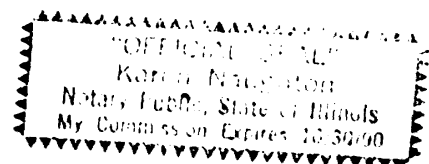 "OFFICIAL SEAL"
Karen Naughton
Notary Public, State of Illinois
My Commission Expires 10/30/90